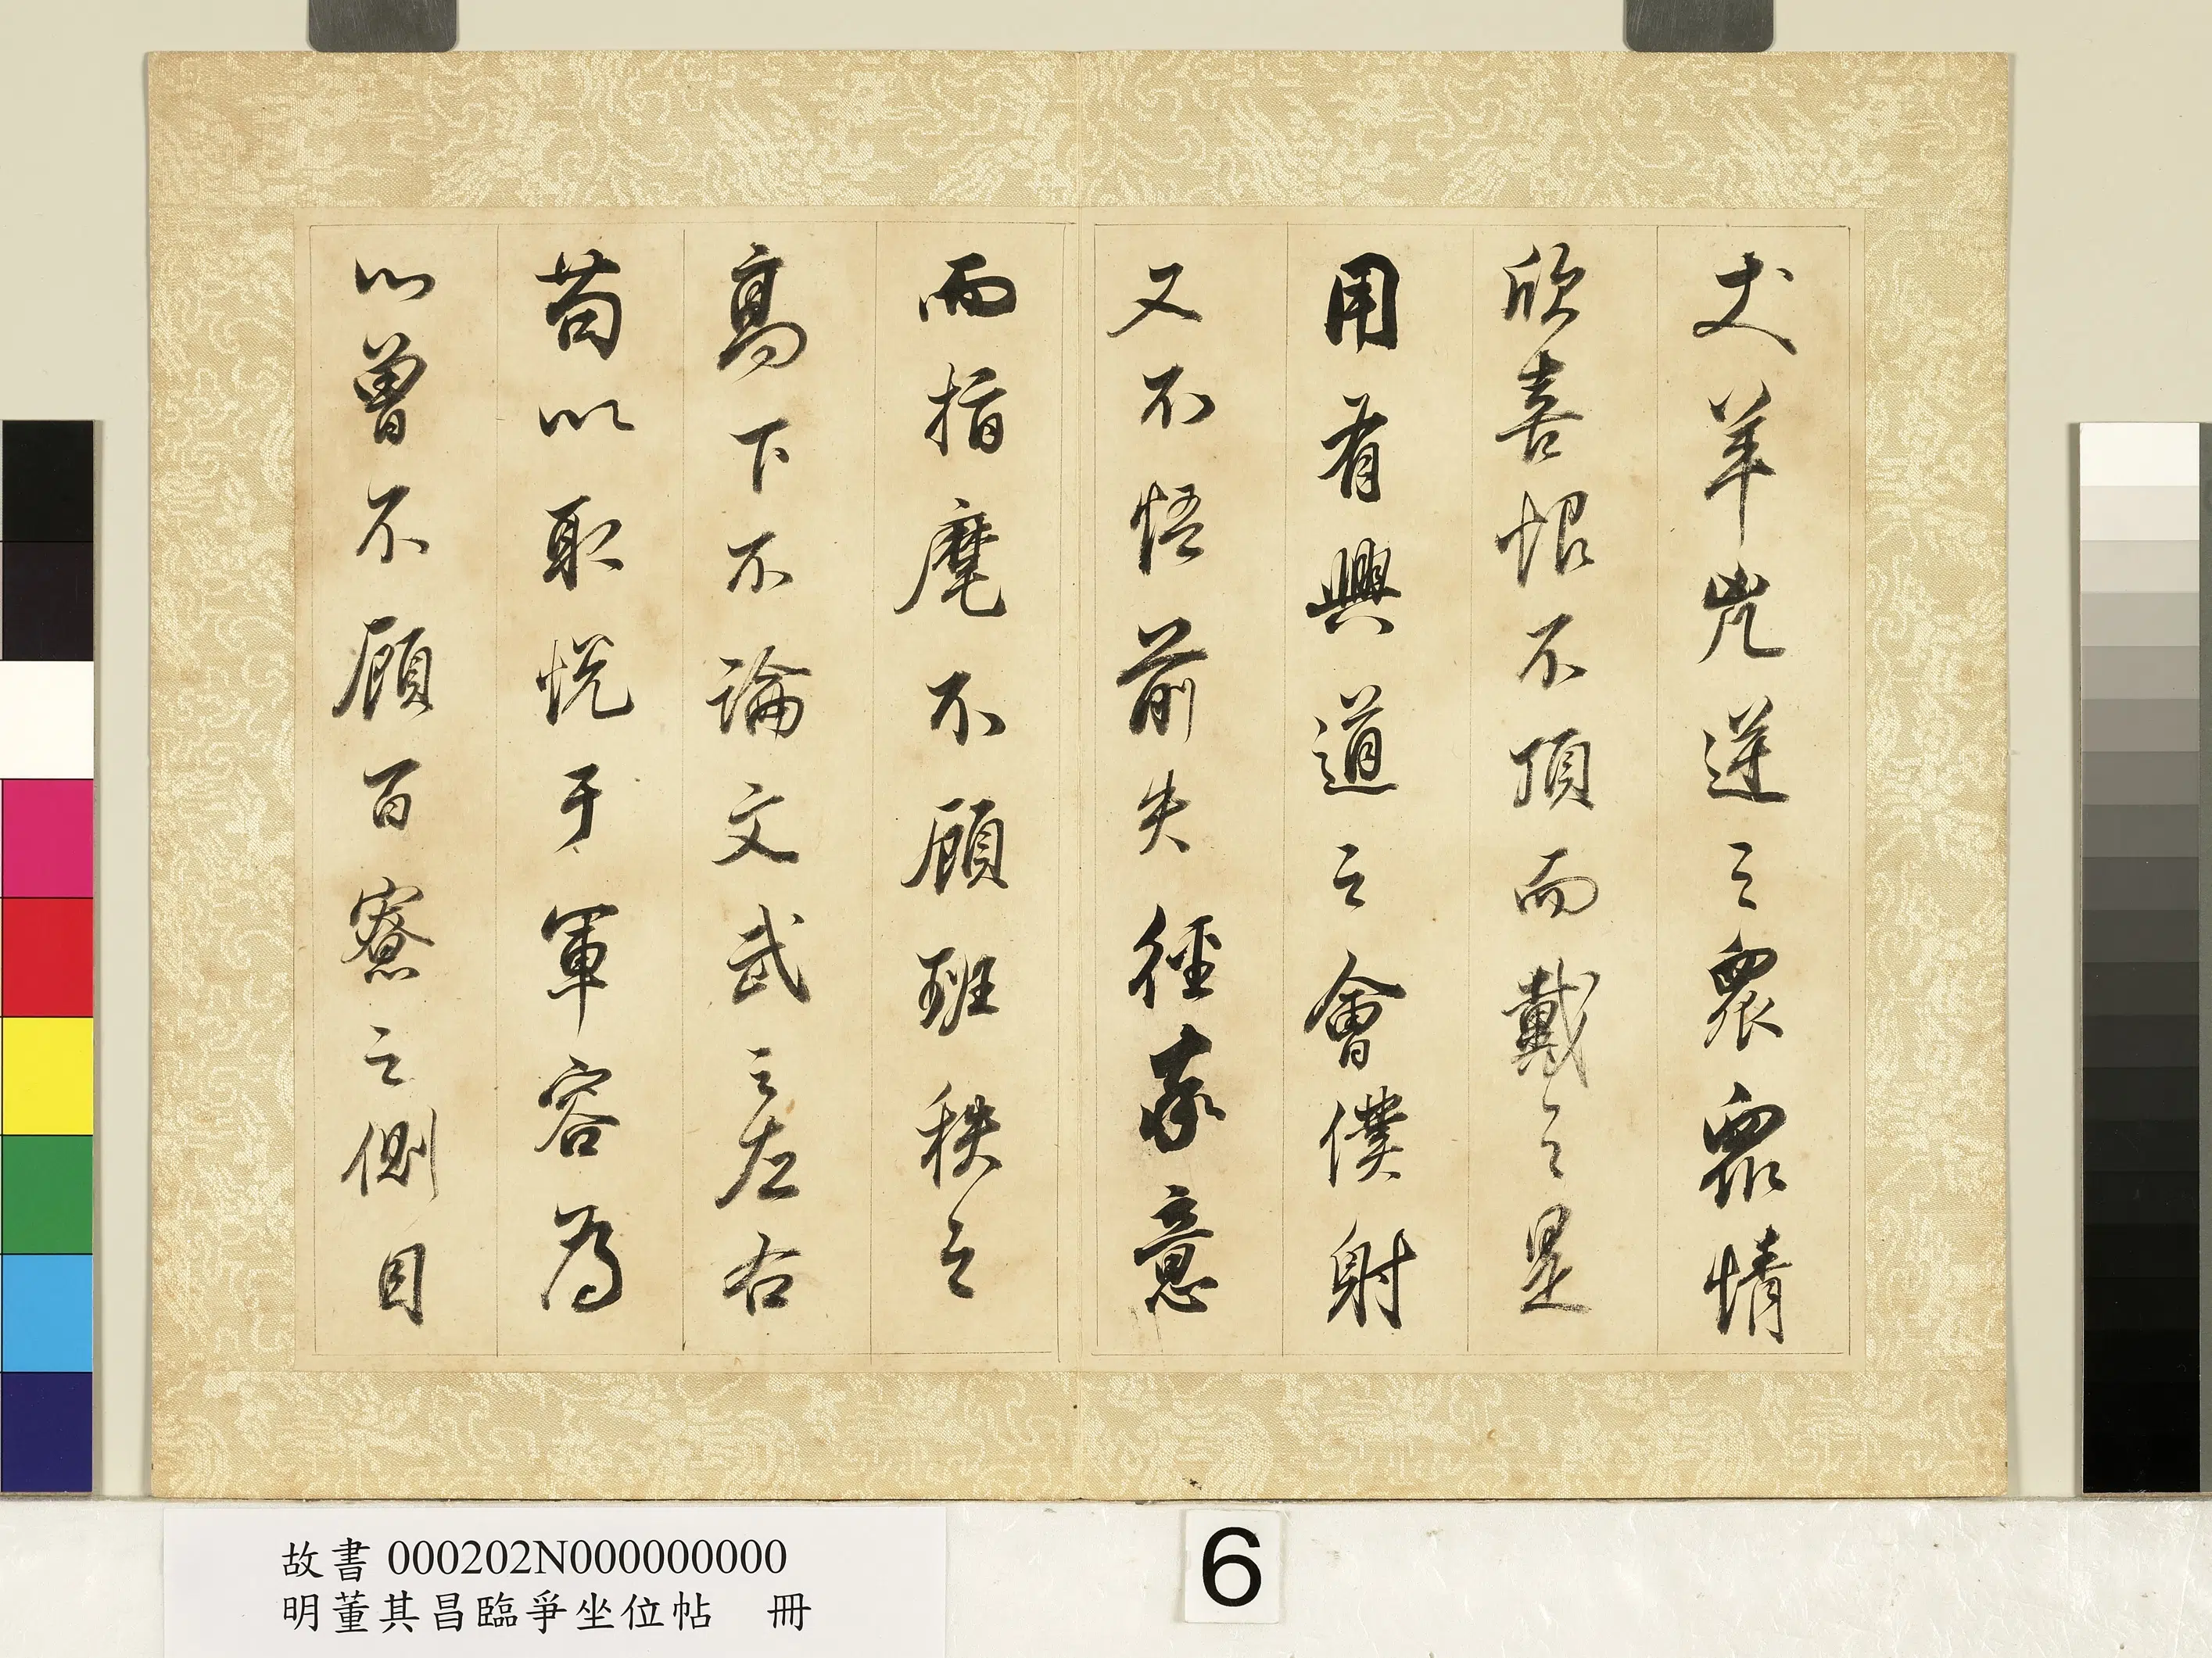 犬羊兇逆之衆衆情
欣喜恨不頂而戴之是
用有興道之會僕射
又不悟前失徑率意
而指麾不顧班秩之
高下不論文武之左右
苟以取悅于軍容為
心曾不顧百寮之側目
故書 000202N000000000
明董其昌臨爭坐位帖　冊
6